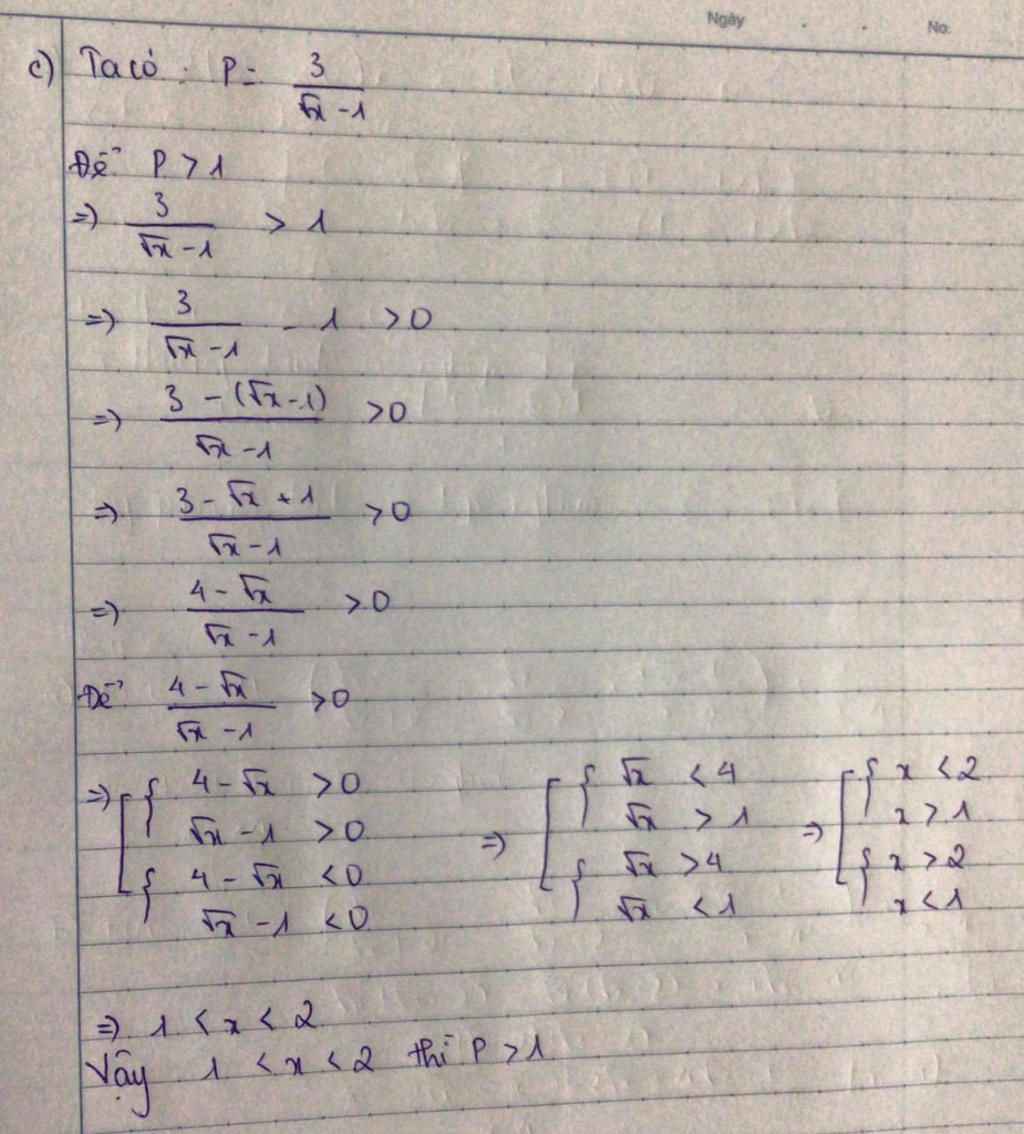 Ngày . . No.
c) Ta có : P = 3/(√x - 1)
Để P > 1
=> 3/(√x - 1) > 1
=> 3/(√x - 1) - 1 > 0
=> (3 - (√x - 1))/(√x - 1) > 0
=> (3 - √x + 1)/(√x - 1) > 0
=> (4 - √x)/(√x - 1) > 0
Để (4 - √x)/(√x - 1) > 0
=> [ { 4 - √x > 0 => [ { √x < 4 => [ { x < 2
√x - 1 > 0 √x > 1 x > 1
{ 4 - √x < 0 { √x > 4 { x > 2
√x - 1 < 0 √x < 1 x < 1
=> 1 < x < 2
Vậy 1 < x < 2 thì P > 1